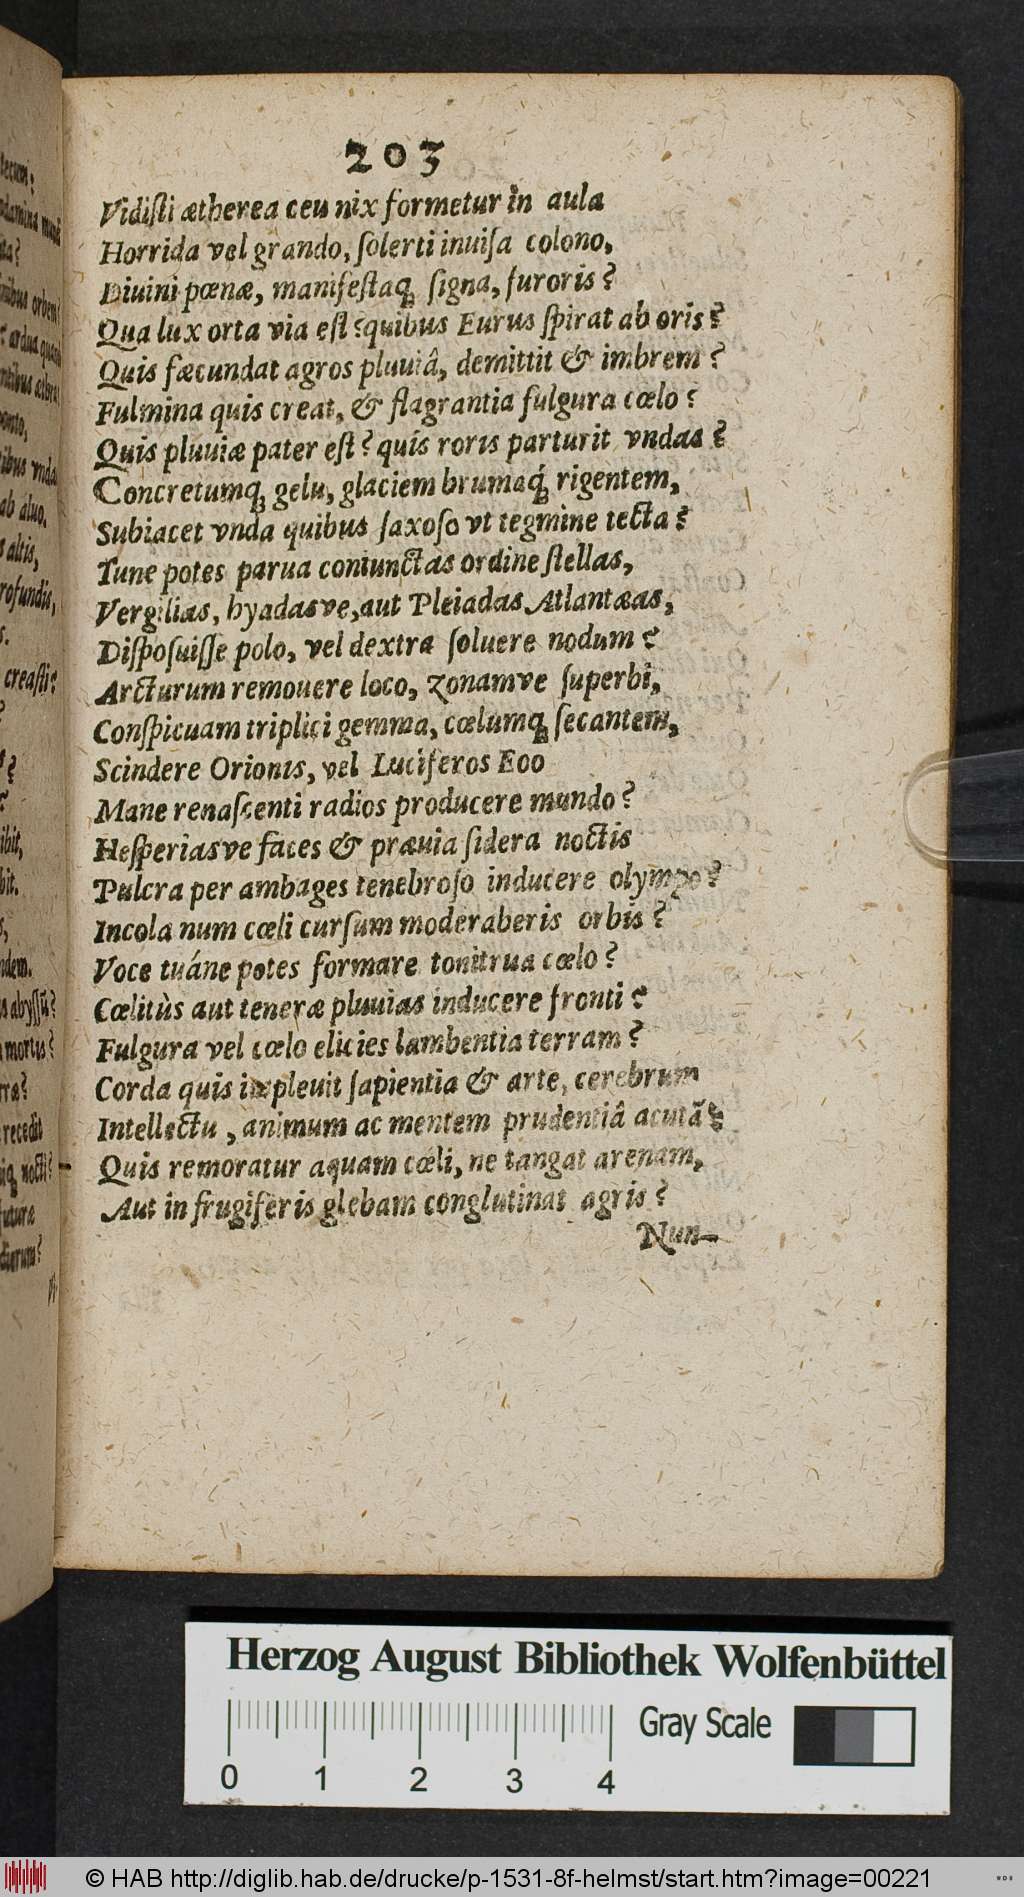 203
Vidiſti ætherea ceu nix formetur in aula
Horrida vel grando, ſolerti inuiſa colono,
Diuini pœnæ, manifeſtaq́ue ſigna, furoris?
Qua lux orta via eſt? quibus Eurus ſpirat ab oris?
Quis fæcundat agros pluuiâ, demittit & imbrem?
Fulmina quis creat, & flagrantia fulgura cœlo?
Quis pluuiæ pater eſt? quis roris parturit vndas?
Concretumq; gelu, glaciem brumaq́; rigentem,
Subiacet vnda quibus ſaxoſo vt tegmine tecta?
Tune potes parua coniunctas ordine ſtellas,
Vergilias, hyadasve, aut Pleiadas Atlantæas,
Diſpoſuiſſe polo, vel dextra ſoluere nodum?
Arcturum remouere loco, zonamve ſuperbi,
Conſpicuam triplici gemma, cœlumq; ſecantem,
Scindere Orionis, vel Luciferos Eoo
Mane renaſcenti radios producere mundo?
Heſperiasve faces & præuia ſidera noctis
Pulcra per ambages tenebroſo inducere olympo?
Incola num cœli curſum moderaberis orbis?
Voce tuáne potes formare tonitrua cœlo?
Cœlitùs aut teneræ pluuias inducere fronti?
Fulgura vel cœlo elicies lambentia terram?
Corda quis impleuit ſapientia & arte, cerebrum
Intellectu, animum ac mentem prudentiâ acutā?
Quis remoratur aquam cœli, ne tangat arenam,
Aut in frugiferis glebam conglutinat agris?
Nun-
Herzog August Bibliothek Wolfenbüttel
Gray Scale
0 1 2 3 4
© HAB http://diglib.hab.de/drucke/p-1531-8f-helmst/start.htm?image=00221